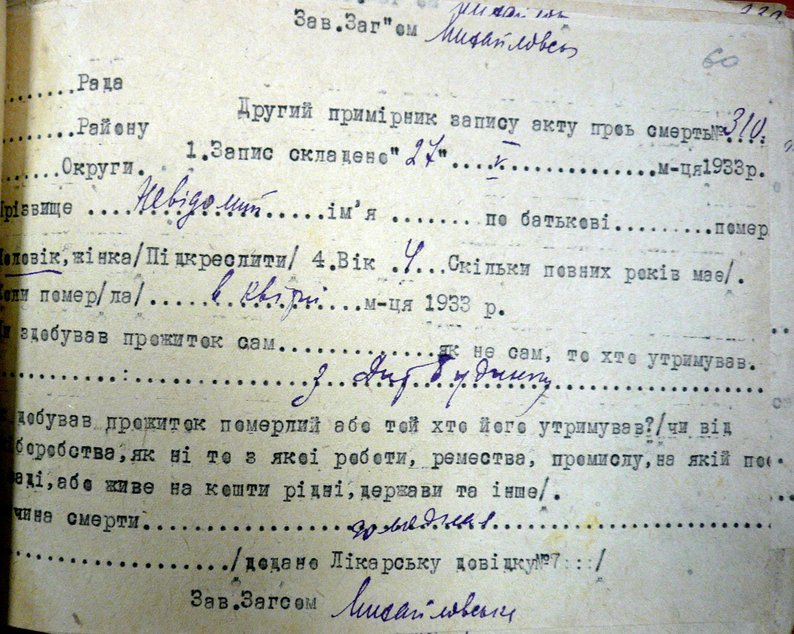 Зав.Заг"ом Михайловськ
60
......Рада
Другий примірник запису акту проь смерть№310.
......Району
1.Запис складено"27"....V...............м-ця1933р.
......Округи.
прізвище ....Невідомий......ім'я ........по батькові.........помер
чоловік,жінка/Підкреслити/ 4.Вік .4...Скільки повних років має/.
коли помер/ла/......в квітні....м-ця 1933 р.
здобував прожиток сам...............як не сам, то хто утримував.
з Дит будинку
добував прожиток померлий або той хто його утримував?/чи від
боробства,як ні то з якої роботи, ремества, промислу,на якій по
аді,або живе на кошти рідні,держави та інше/.
чина смерти....................
................/додано Лікарську довідку№7:::/
Зав.Загсом Михайловськ